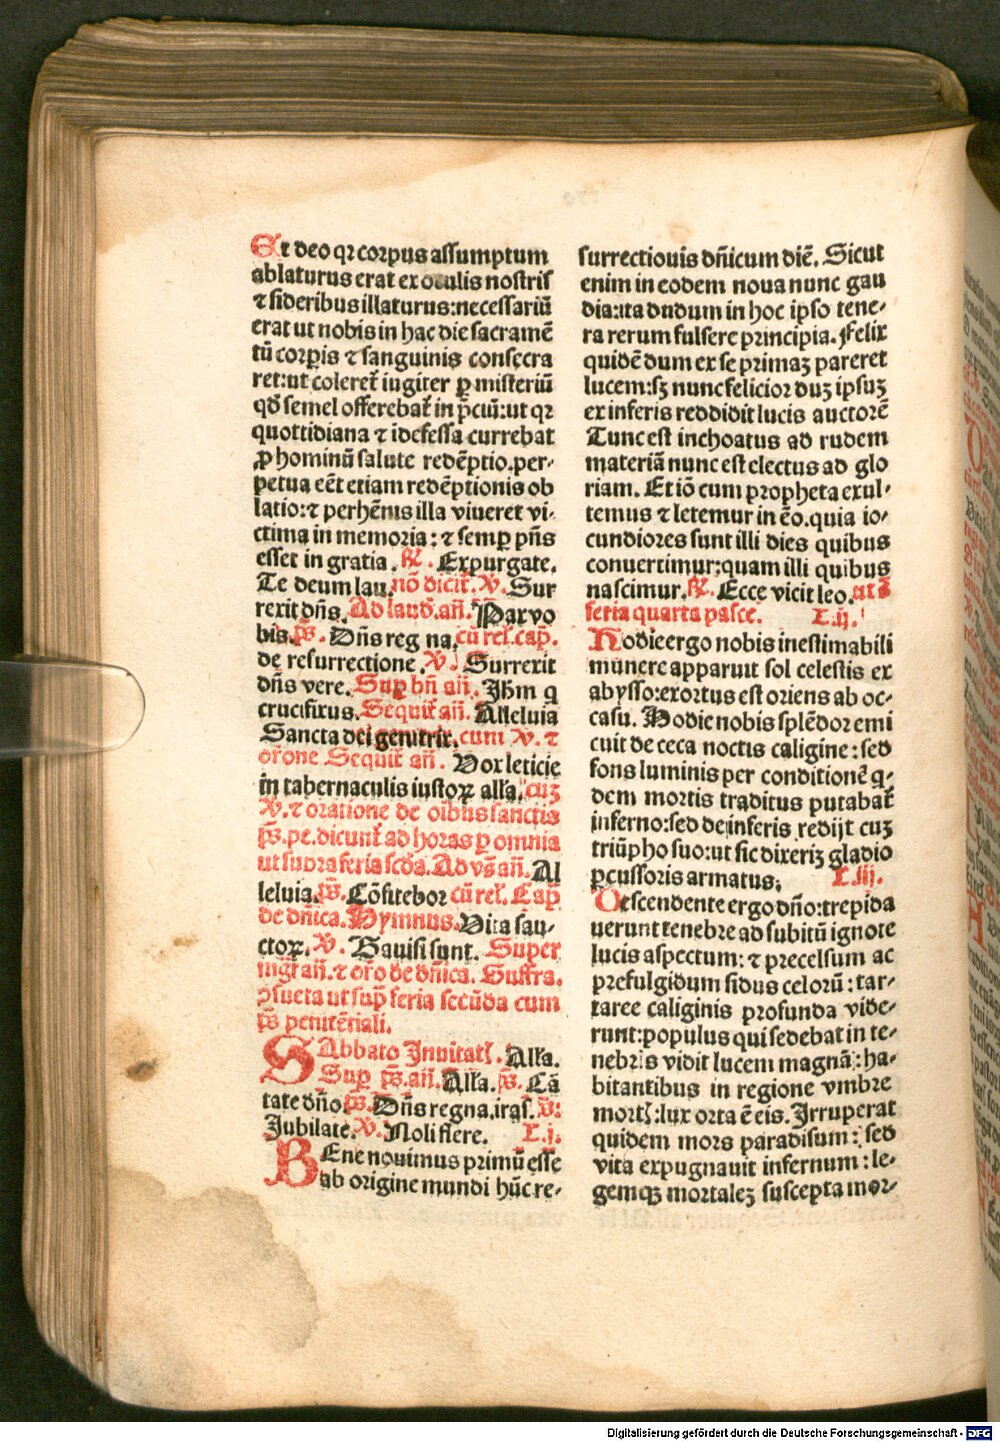 Et deo qꝛ corpus assumptum
ablaturus erat ex oculis nostris
⁊ sideribus illaturus: necessariū
erat ut nobis in hac die sacramē
tū corpꝑis ⁊ sanguinis consecra
ret: ut coleret̄ iugiter ꝑ misteriū
qd̄ semel offerebat̄ in p̄ciū: ut qꝛ
quottidiana ⁊ īdefessa currebat
ꝓ hominū salute redēptio. per-
petua eēt etiam redēptionis ob
latio: ⁊ perhēnis illa viueret vi-
ctima in memoria: ⁊ semꝑ pn̄s
esset in gratia. ℟. Expurgate.
Te deum lau. nō dicit̄. ℣. Sur
rexit dn̄s. Ad laud. añ. Pax vo
bis. ps̄. Dn̄s reg na. cū rel̄. cap̄.
de resurrectione. ℣. Surrexit
dn̄s vere. Suꝑ bn̄ añ. Jhm̄ q
crucifixus. Sequit̄ añ. Alleluia
Sancta dei genitrix. cum ℣. ⁊
or̄one Sequit̄ añ. Vox leticie
in tabernaculis iustoꝝ all̄a. cuꝫ
℣. ⁊ oratione de oībus sanctis
ps̄. pe. dicunt̄ ad horas ꝑ omnia
ut supra feria scd̄a. Ad vs̄ añ. Al
leluia. ps̄. Cōfitebor cū rel̄. Cap̄
de dn̄ica. Hymnus. Vita san-
ctoꝝ. ℣. Gauisi sunt. Super
mgr̄ añ. ⁊ or̄o de dn̄ica. Suffra.
ꝯsueta ut sup̄ feria secūda cum
ps̄ penitēriali.
SAbbato Inuitatꝭ. All̄a.
Suꝑ ps̄. añ. All̄a. ps̄. Cā
tate dn̄o ps̄. Dn̄s regna. iras̄. ps̄:
Jubilate. ℣. Noli flere. L. j.
BEne nouimus primū esse
ab origine mundi hūc re-
surrectiouis dn̄icum diē. Sicut
enim in eodem noua nunc gau
dia: ita dudum in hoc ipso tene-
ra rerum fulsere principia. Felix
quidē dum ex se primaꝫ pareret
lucem: sꝫ nunc felicior duꝫ ipsuꝫ
ex inferis reddidit lucis auctorē
Tunc est inchoatus ad rudem
materiā nunc est electus ad glo
riam. Et iō cum propheta exul-
temus ⁊ letemur in ēo. quia io-
cundiores sunt illi dies quibus
conuertimur: quam illi quibus
nascimur. ℟. Ecce vicit leo. ut ī
feria quarta pasce. L. ij.
Hodie ergo nobis inestimabili
munere apparuit sol celestis ex
abysso: exortus est oriens ab oc-
casu. Hodie nobis splēdor emi
cuit de ceca noctis caligine: sed
fons luminis per conditionē q-
dem mortis traditus putabat̄
inferno: sed de inferis redijt cuꝫ
triūpho suo: ut sic dixeriꝫ gladio
ꝑcussoris armatus; L. iij.
Descendente ergo dn̄o: trepida
uerunt tenebre ad subitū ignote
lucis aspectum: ⁊ precelsum ac
prefulgidum sidus celorū: tar-
taree caliginis profunda vide-
runt: populus qui sedebat in te-
nebris vidit lucem magnā: ha-
bitantibus in regione vmbre
mortꝭ: lux orta ē eis. Irruperat
quidem mors paradisum: sed
vita expugnauit infernum: le-
gemqꝫ mortaleꝫ suscepta mor-
Digitalisierung gefördert durch die Deutsche Forschungsgemeinschaft - DFG